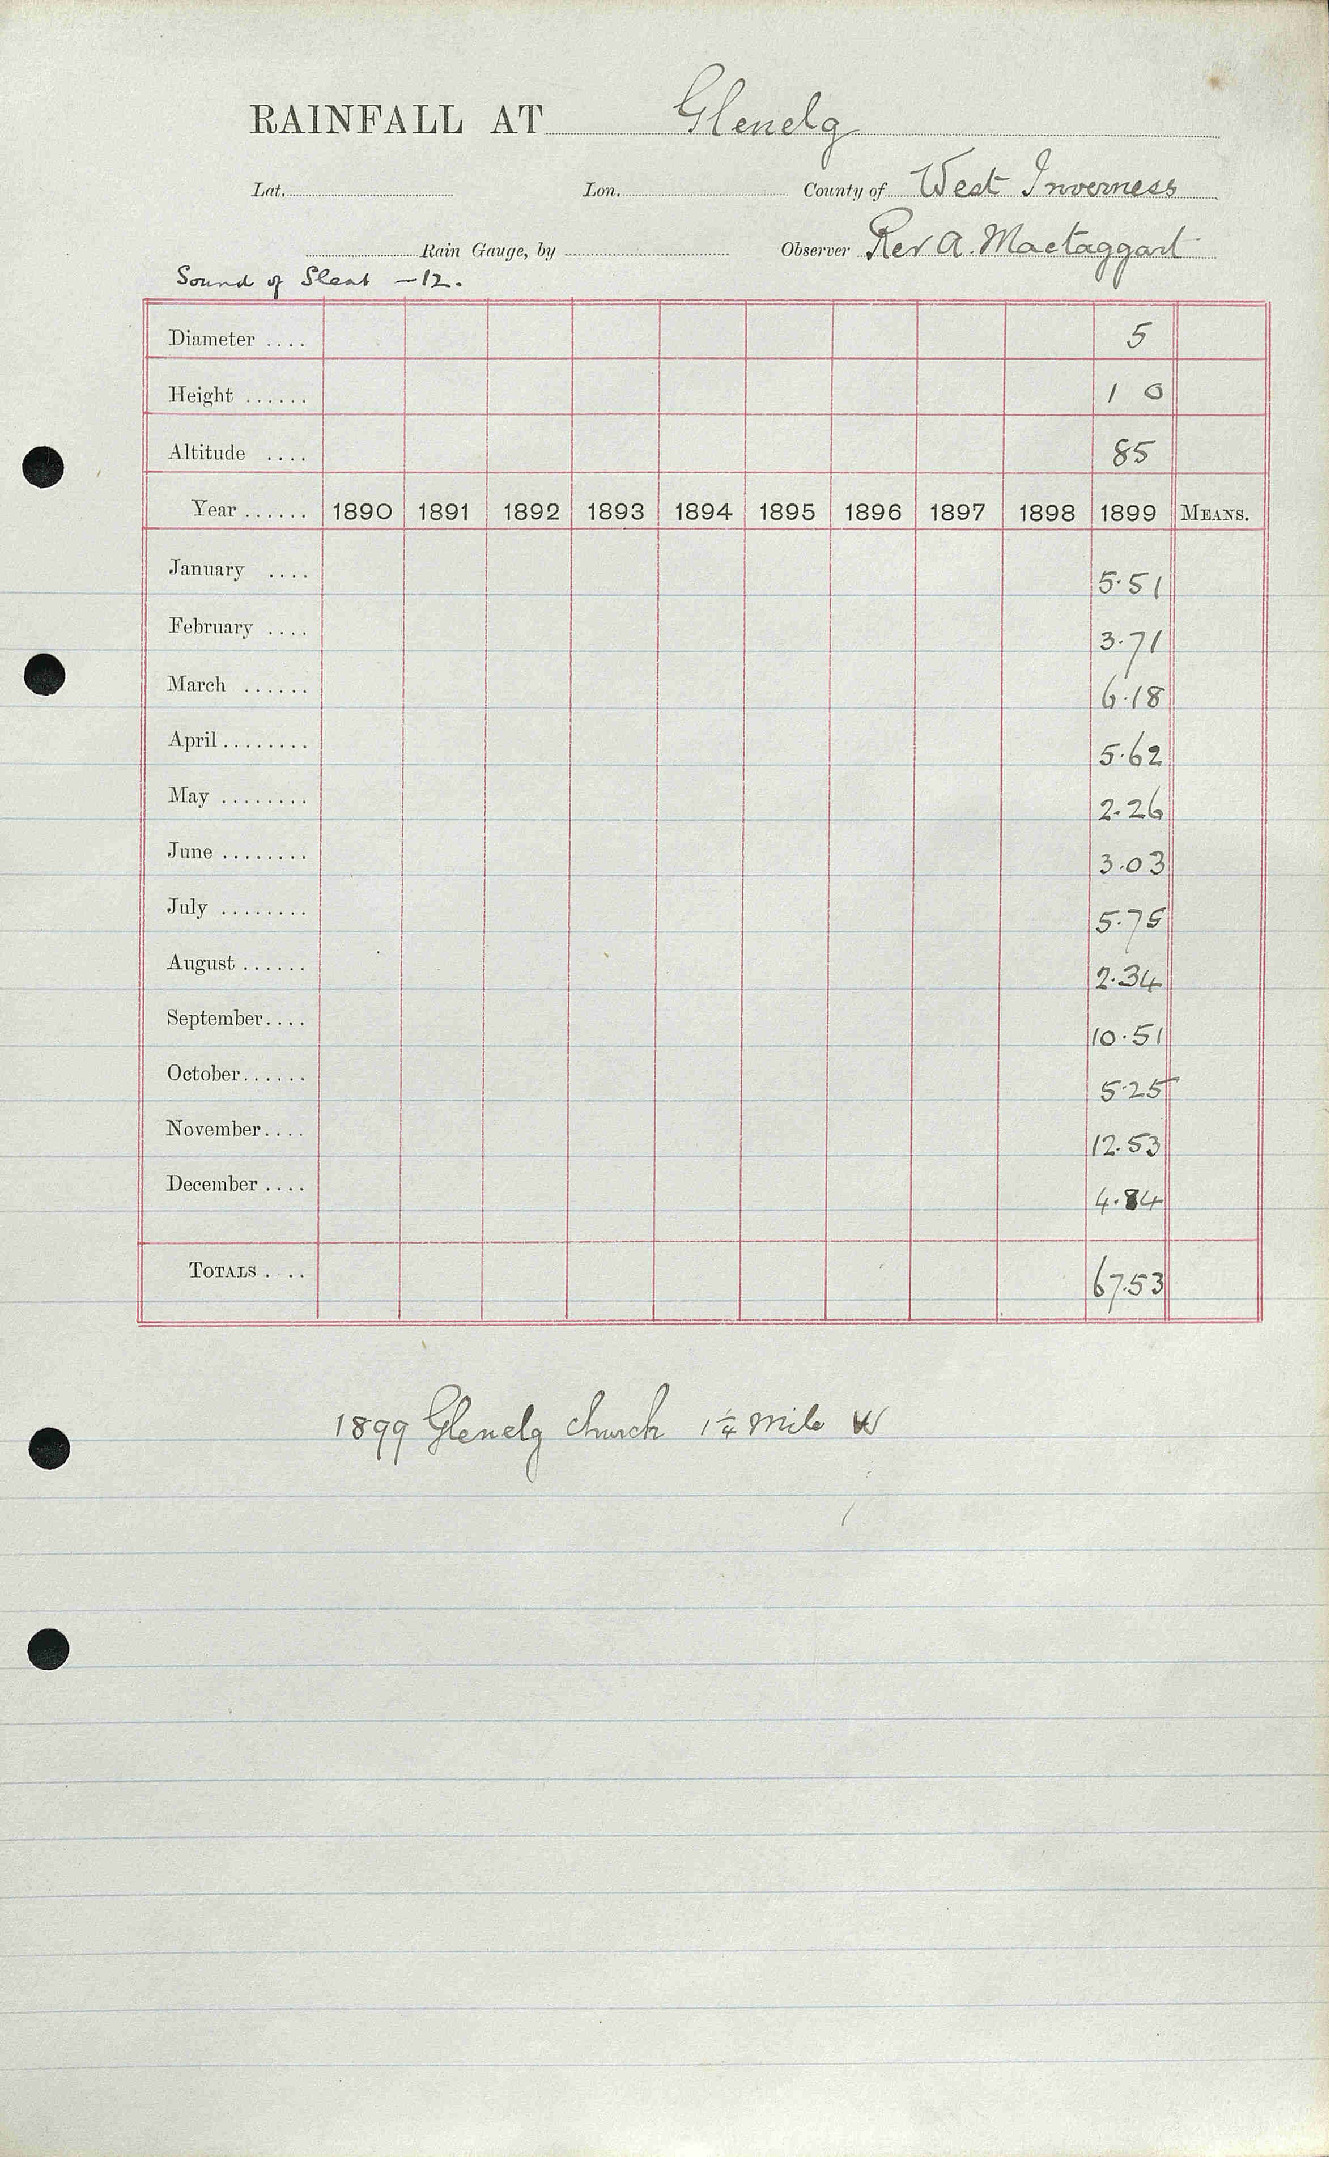 RAINFALL AT Glenelg
Lat. Lon. County of West Inverness
Rain Gauge, by Observer Rev A. Mactaggart
Sound of Sleat -12.
Diameter .... 5
Height ...... 1 0
Altitude .... 85
Year ...... 1890 1891 1892 1893 1894 1895 1896 1897 1898 1899 MEANS.
January .... 5.51
February .... 3.71
March ...... 6.18
April ........ 5.62
May ........ 2.26
June ........ 3.03
July ........ 5.75
August ...... 2.34
September .... 10.51
October ...... 5.25
November .... 12.53
December .... 4.84
TOTALS . .. 67.53
1899 Glenelg church 1¼ mile W